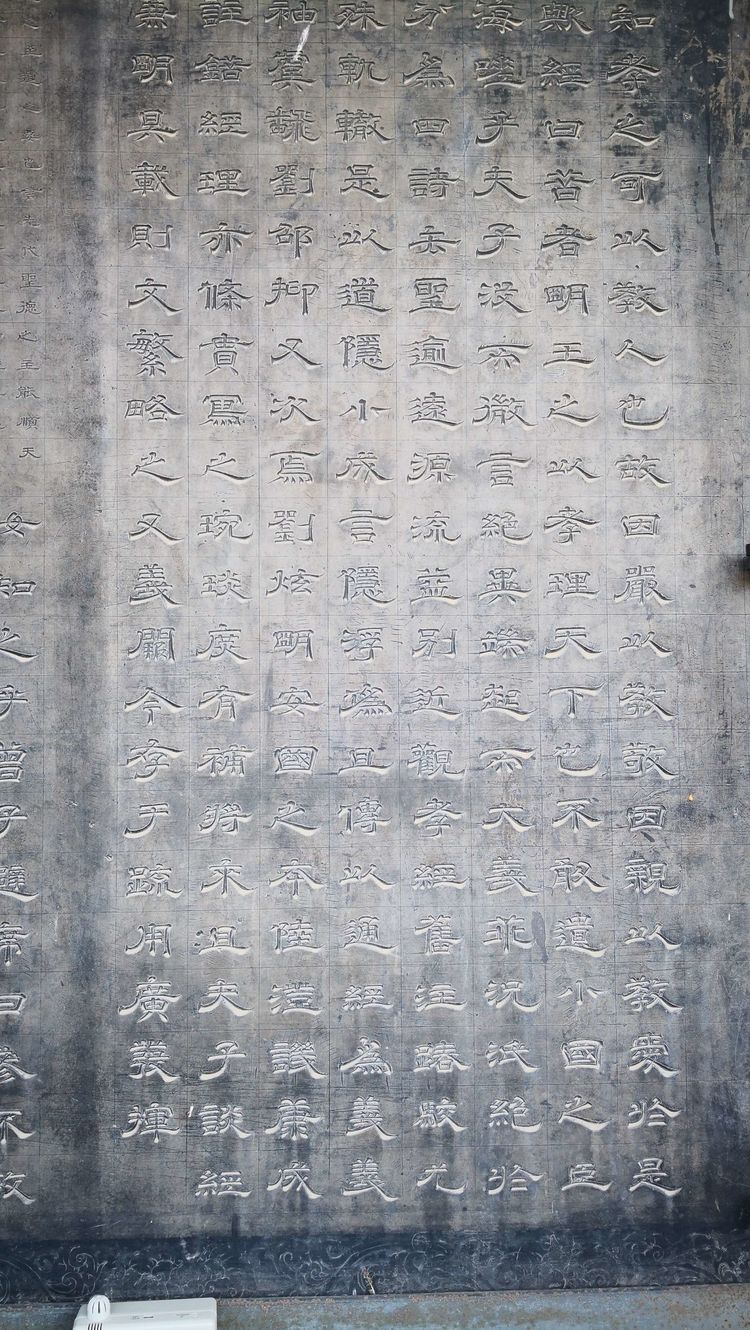 知孝之可以教人也故因嚴以教敬因親以教愛於是
歟經曰昔者明王之以孝理天下也不敢遺小國之臣
海嗟乎夫子沒而微言絕異端起而大義乖況泯絕於
分為四詩去聖逾遠源流益別近觀孝經舊注踳駮尤
殊軌轍是以道隱小成言隱浮偽且傳以通經為義義
袖虞翻劉邵抑又次焉劉炫明安國之本陸澄譏康成
註錯經理亦條貫寫之琬琰庶有補將來且夫子談經
無明具載則文繁略之又義闕今存于疏用廣發揮
之至道之要也言先代聖德之主能順天
汝知之乎曾子避席曰參不敏